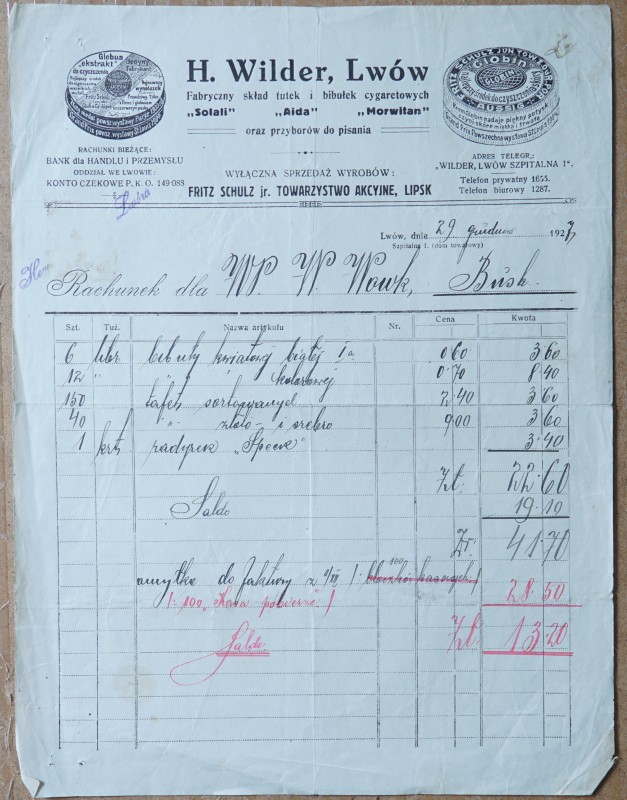 Globus
"ekstrakt"
do czyszczenia
Jedyny
Fabrykant
Fritz Schulz
FRITZ SCHULZ JUN. TOW. AKC.
Globin
AUSSIG
H. Wilder, Lwów
Fabryczny skład tutek i bibułek cygaretowych
„Solali" „Aida" „Morwitan"
oraz przyborów do pisania
RACHUNKI BIEŻĄCE:
BANK dla HANDLU i PRZEMYSŁU
ODDZIAŁ WE LWOWIE:
KONTO CZEKOWE P. K. O. 149·088
WYŁĄCZNA SPRZEDAŻ WYROBÓW:
FRITZ SCHULZ jr. TOWARZYSTWO AKCYJNE, LIPSK
ADRES TELEGR.:
„WILDER, LWÓW SZPITALNA 1".
Telefon prywatny 1655.
Telefon biurowy 1287.
Lwów, dnia 29 grudnia 1927
Szpitalna 1. (dom towarowy)
Rachunek dla WP. W. Wowk, Busk.
Szt. Tuż. Nazwa artykułu Nr. Cena Kwota
6 libr bibuły kwiatowej białej Ia 0 60 3·60
12 " " kolorowej 0·70 8·40
150 tafel sortowanych 2 40 3·60
40 " złoto- i srebro 9 00 3·60
1 "Specik" 3·40
Zł. 22·60
Saldo 19·10
Zł. 41·70
omyłka do faktury z
28·50
100 "Kasa
Saldo Zł. 13·20